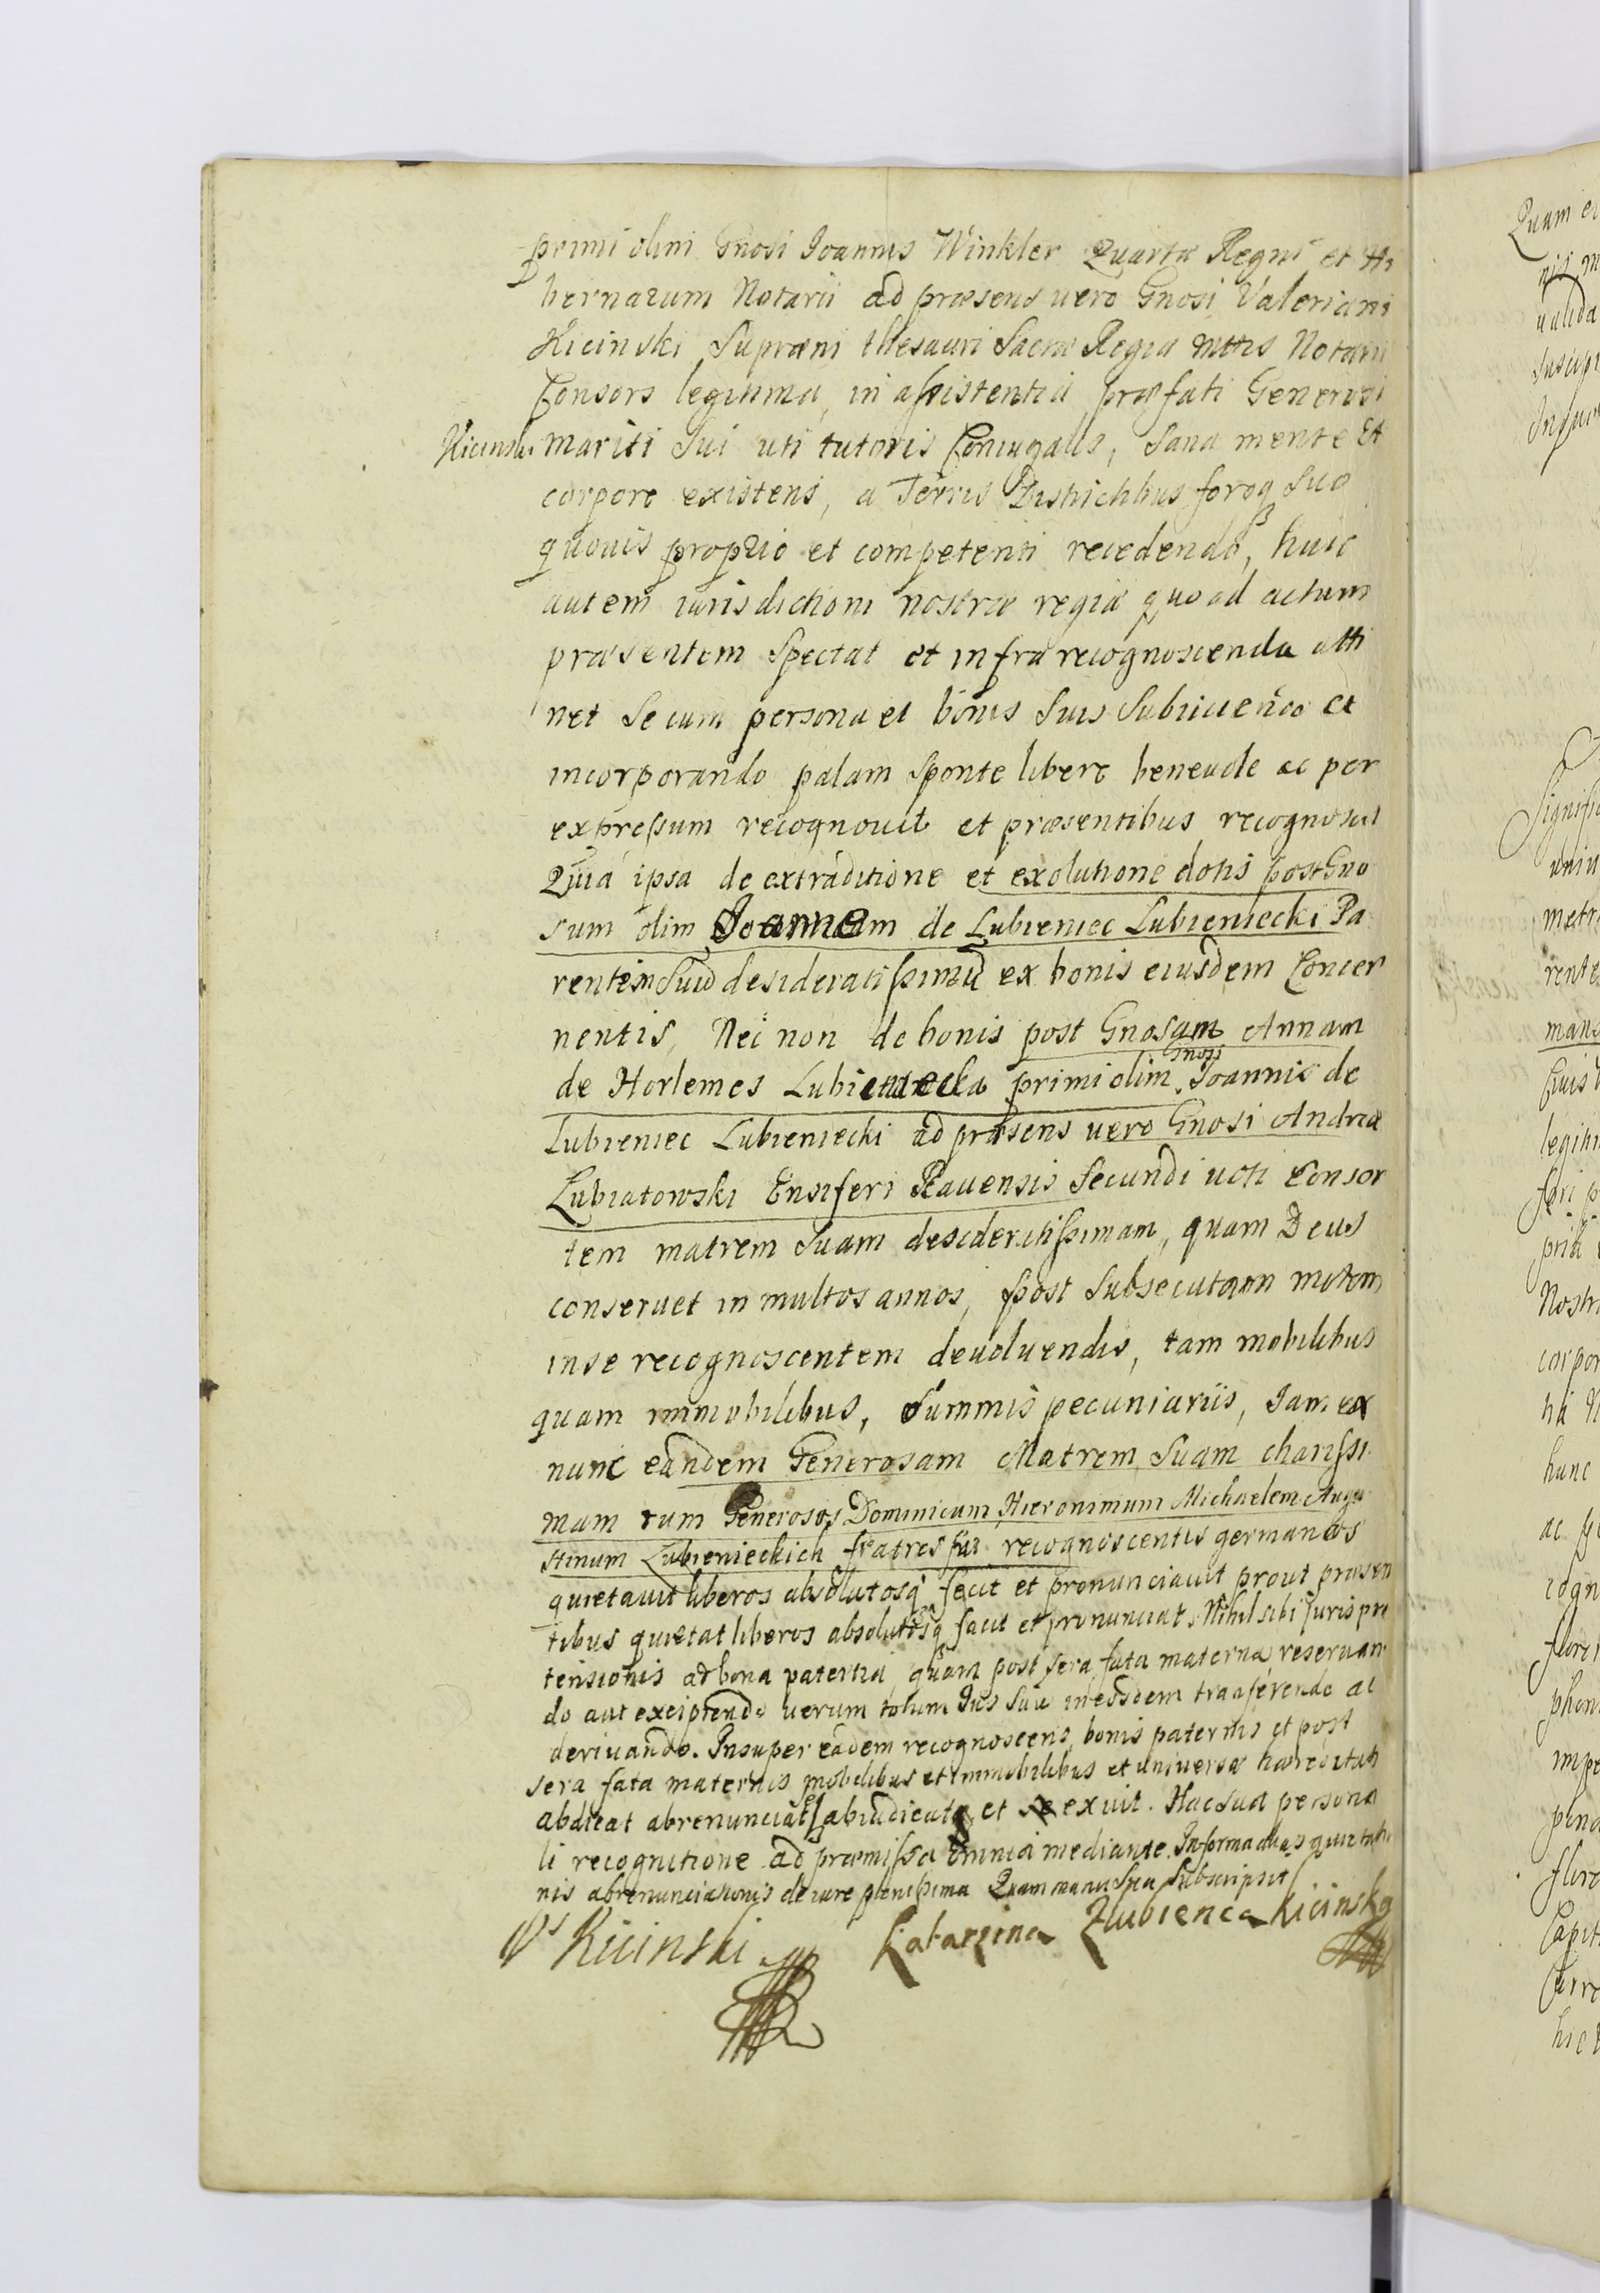 primi olim Gnosi Joannis Winkler Quartæ Regni et Hi
bernarum Notarii ad præsens uero Gnosi Valeriani
Kicinski Supremi thesauri Sacræ Regiæ Mttis Notarii
Consors legitima, in assistentia præfati Generosi
Kicinski
mariti sui uti tutoris Coniugalis, sana mente Et
corpore existens, a Terris Districtibus foroq suo
quouis proprio et competenti recedendo, huic
autem iurisdictioni nostræ regiæ quoad actum
præsentem spectat et infra recognoscenda atti
net se cum persona et bonis suis subiiciendo et
incorporando palam sponte libere beneuole ac per
expressum recognouit et præsentibus recognoscit
Quia ipsa de extraditione et exolutione dotis post Gno
sum olim Joannem de Lubieniec Lubieniecki Pa
rentem suum desideratissimū ex bonis eiusdem Concer
nentis, Nec non de bonis post Gnosam Annam
de Horlemes Lubieniecka primi olim Gnosi Joannis de
Lubieniec Lubieniecki ad præsens uero Gnosi Andreæ
Lubiatowski Ensiferi Rauensis secundi uoti Consor
tem matrem suam desideratissimam, quam Deus
conseruet in multos annos, post subsecutam mortem
in se recognoscentem deuoluendis, tam mobilibus
quam immobilibus, summis pecuniariis, Jam ex
nunc eandem Generosam Matrem suam charissi
mam cum Generosos Dominicum, Hieronimum Michaelem Augu
stinum Lubienieckich fratres suæ recognoscentis germanos
quietauit liberos absolutosq fecit et pronunciauit prout præsen
tibus quietat liberos absolutosq facit et pronunciat. Nihil sibi juris præ
tensionis ad bona paterna, quam post sera fata materna, reseruan
do aut excipiendo uerum totum Jus suū in eosdem transferendo ac
deriuando. Insuper eadem recognoscens bonis paternis et post
sera fata maternis mobilibus et immobilibus et uniuersæ hæreditati
abdicat abrenunciat et abiudicat et se exuit. Hac sua persona
li recognitione ad præmissa omnia mediante. In forma duas quietatio
nis abrenunciationis de iure plenissima Quam manu sua subscripsit
Kicinski
Katarzina Zlubienca Kicinska